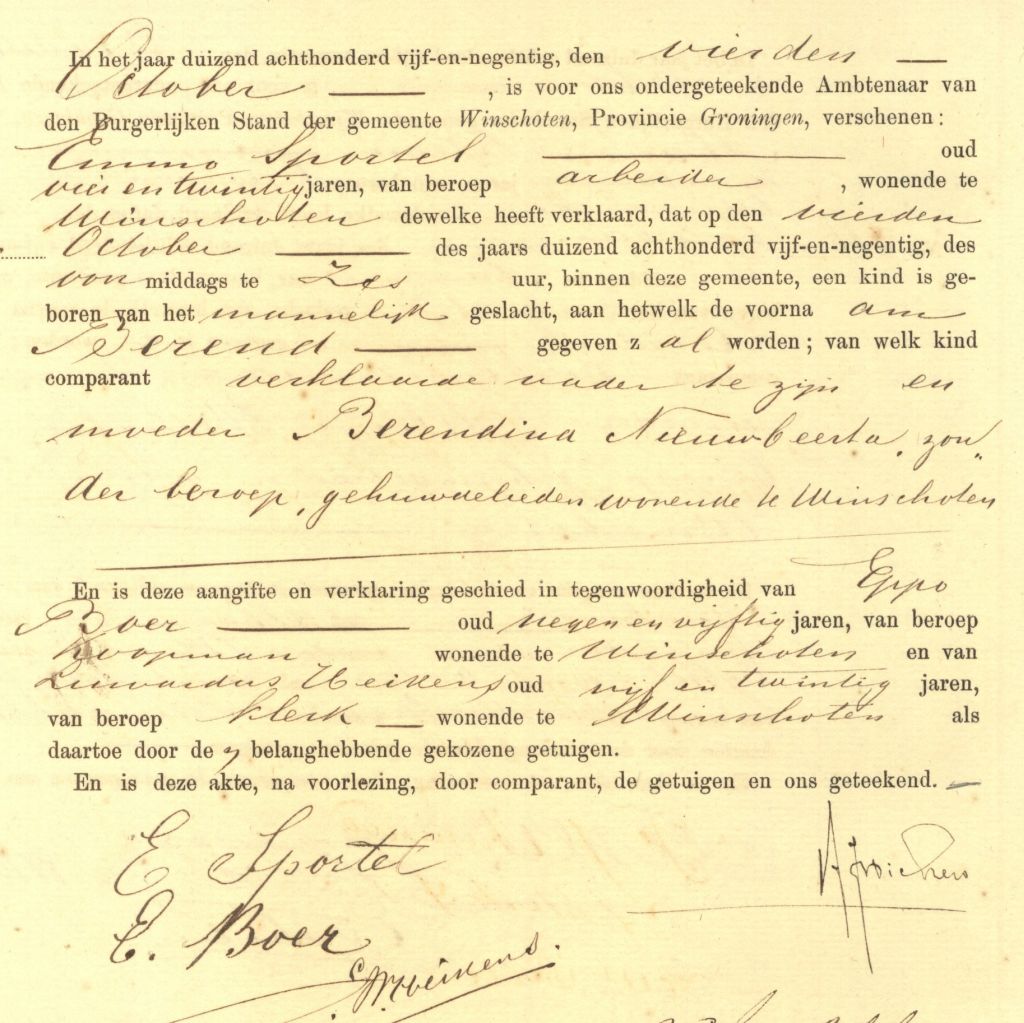 In het jaar duizend achthonderd vijf-en-negentig, den vierden
October, is voor ons ondergeteekende Ambtenaar van
den Burgerlijken Stand der gemeente Winschoten, Provincie Groningen, verschenen:
Emmo Sportel oud
vier en twintig jaren, van beroep arbeider, wonende te
Winschoten dewelke heeft verklaard, dat op den vierden
October des jaars duizend achthonderd vijf-en-negentig, des
voor middags te zes uur, binnen deze gemeente, een kind is ge-
boren van het mannelijk geslacht, aan hetwelk de voorna am
Berend gegeven z al worden; van welk kind
comparant verklaarde vader te zijn en
moeder Berendina Nieuwbeerta, zon"
der beroep, gehuwdelieden wonende te Winschoten
En is deze aangifte en verklaring geschied in tegenwoordigheid van Eppo
Boer oud negen en vijftig jaren, van beroep
koopman wonende te Winschoten en van
Heikens oud vijf en twintig jaren,
van beroep klerk wonende te Winschoten als
daartoe door de belanghebbende gekozene getuigen.
En is deze akte, na voorlezing, door comparant, de getuigen en ons geteekend.
E Sportel
E. Boer
Heikens.